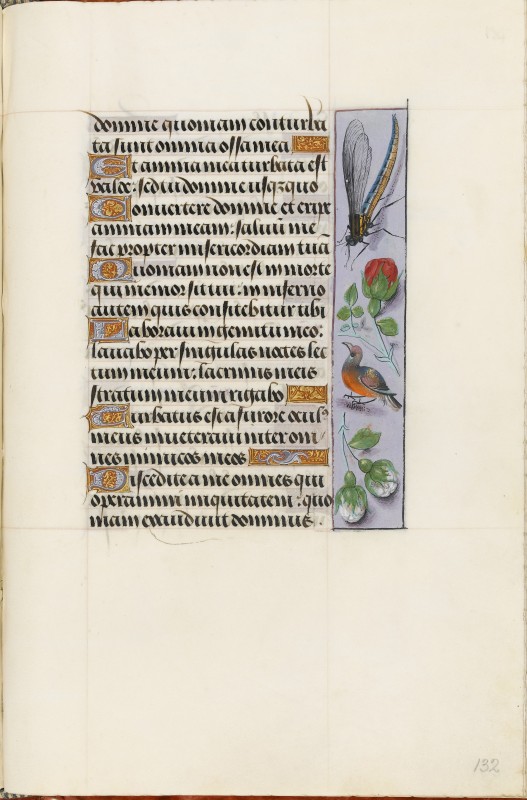 domine quoniam conturba
ta sunt omnia ossa mea
Et anima mea turbata est
valde: sed tu domine usq3quo
Convertere domine et eripe
animam meam: salvu me
fac propter misericordiam tua
Quoniam non est in morte
qui memor sit tui: in inferno
autem quis confitebitur tibi
Laboravi in gemitu meo:
lavabo per singulas noctes lec
tum meum: lacrimis meis
stratum meum rigabo
Turbatus est a furore oculus
meus inveteravi inter om
nes inimicos meos
Discedite a me omnes qui
operamini iniquitatem: quo
niam exaudivit dominus
132